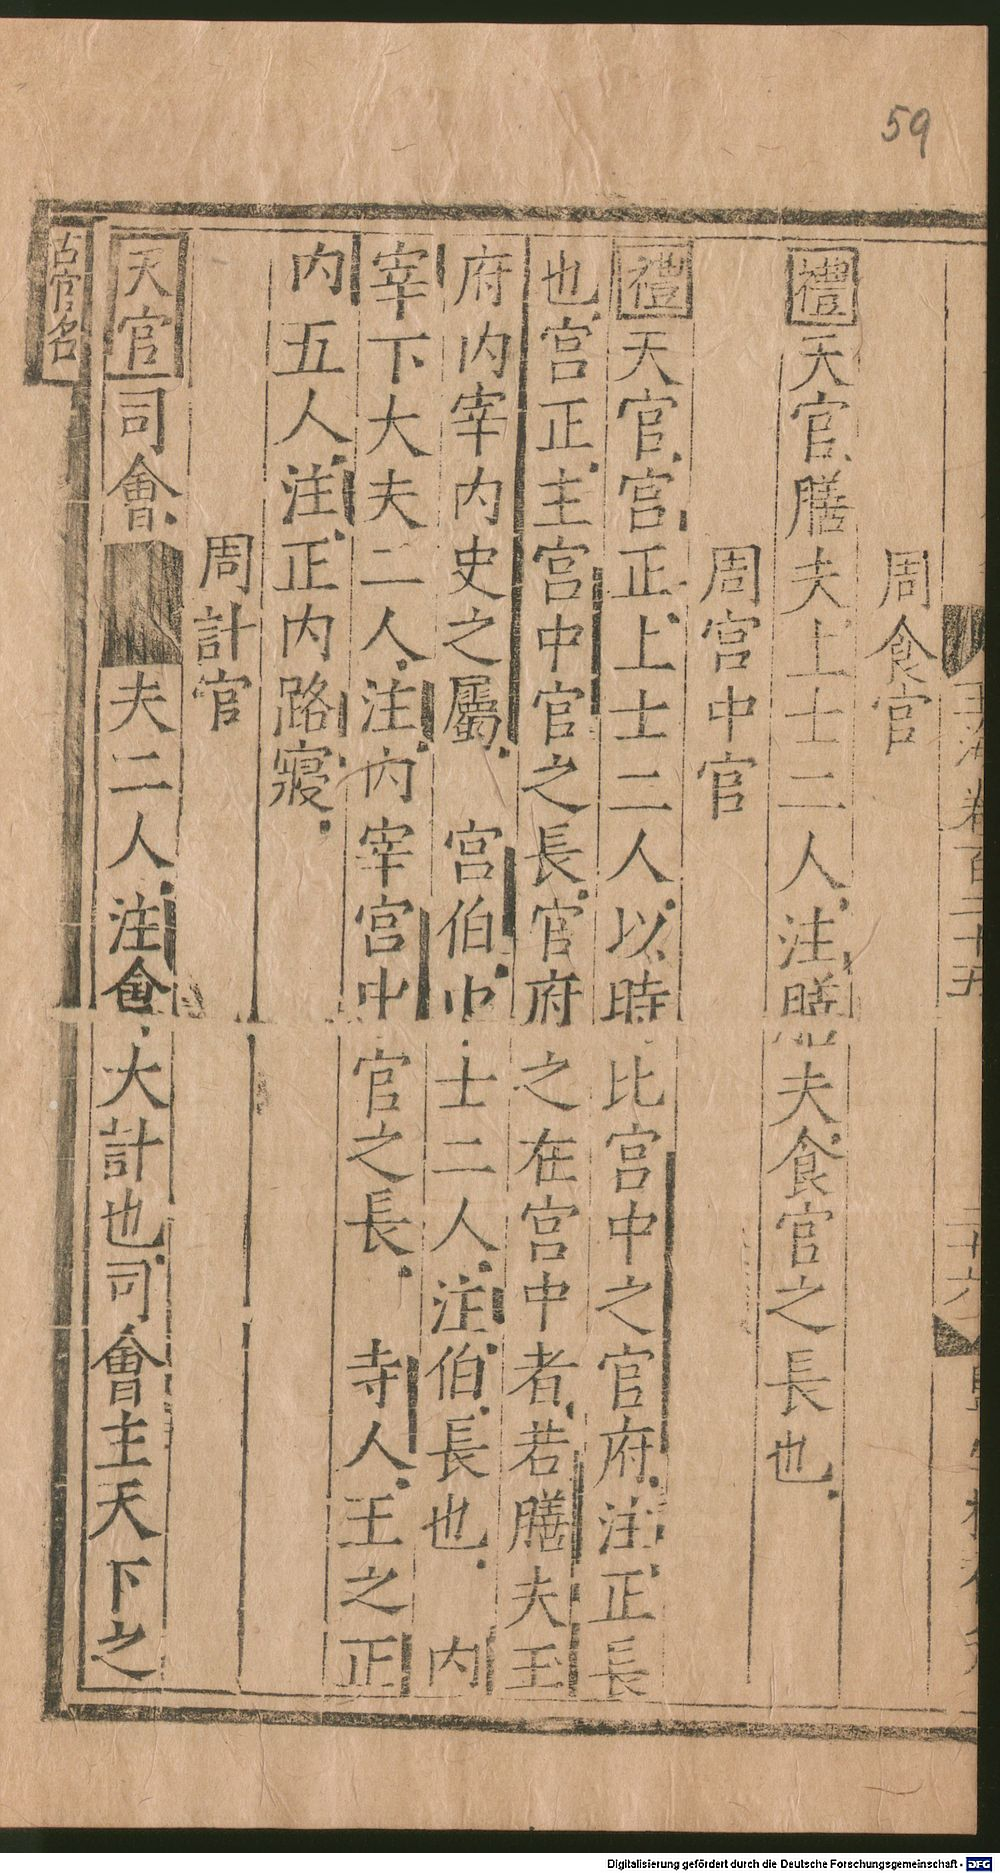 59
玉海卷百二十五
二十六
周食官
禮天官膳夫上士二人注膳夫食官之長也
周宮中官
禮天官宮正上士二人以時比宮中之官府注正長
也宮正主宮中官之長官府之在宮中者若膳夫玉
府内宰内史之屬 宮伯中士二人注伯長也 内
宰下大夫二人注内宰宮中官之長 寺人王之正
内五人注正内路寢
周計官
天官司會夫二人注會大計也司會主天下之
古官名
Digitalisierung gefördert durch die Deutsche Forschungsgemeinschaft - DFG